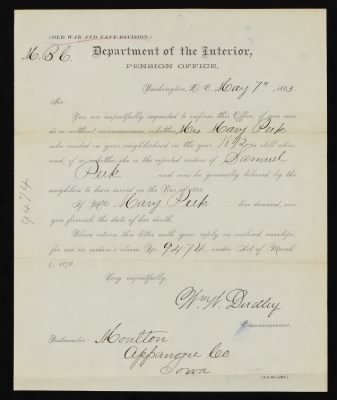 (OLD WAR AND NAVY DIVISION.)
M.B.C.
Department of the Interior,
PENSION OFFICE,
Washington, D. C. May 7th, 1883
Sir:
You are respectfully requested to inform this Office, if you can
do so without inconvenience, whether Mrs. Mary Peek
who resided in your neighborhood in the year 18 is still alive,
and, if so, whether she is the reputed widow of Samuel
Peek, and was he generally believed by the
neighbors to have served in the War of 1812.
If Mrs. Mary Peek has deceased, can
you furnish the date of her death.
Please return this letter with your reply in enclosed envelope,
for use in widow's claim No. 9474, under Act of March
9, 1878.
Very respectfully,
Wm. W. Dudley
Commissioner.
Postmaster,
Moulton
Appanoose Co
Iowa
9474